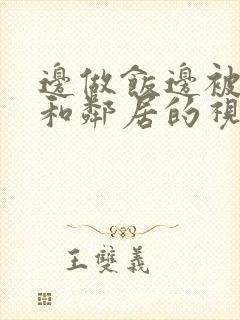 邊做飯邊被
和鄰居的視
王雙義